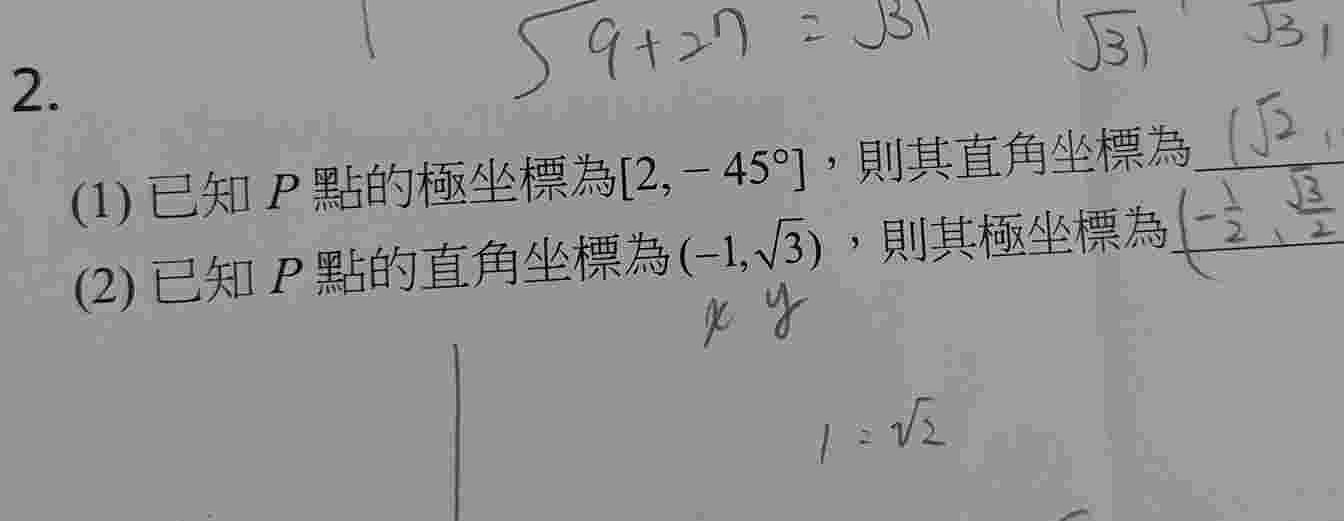 √9+27 = √31 √31 √31
2.
(1) 已知 P 點的極坐標為[2, − 45°]，則其直角坐標為 (√2,
(2) 已知 P 點的直角坐標為(−1,√3)，則其極坐標為(-1/2、√3/2
x y
1 = √2